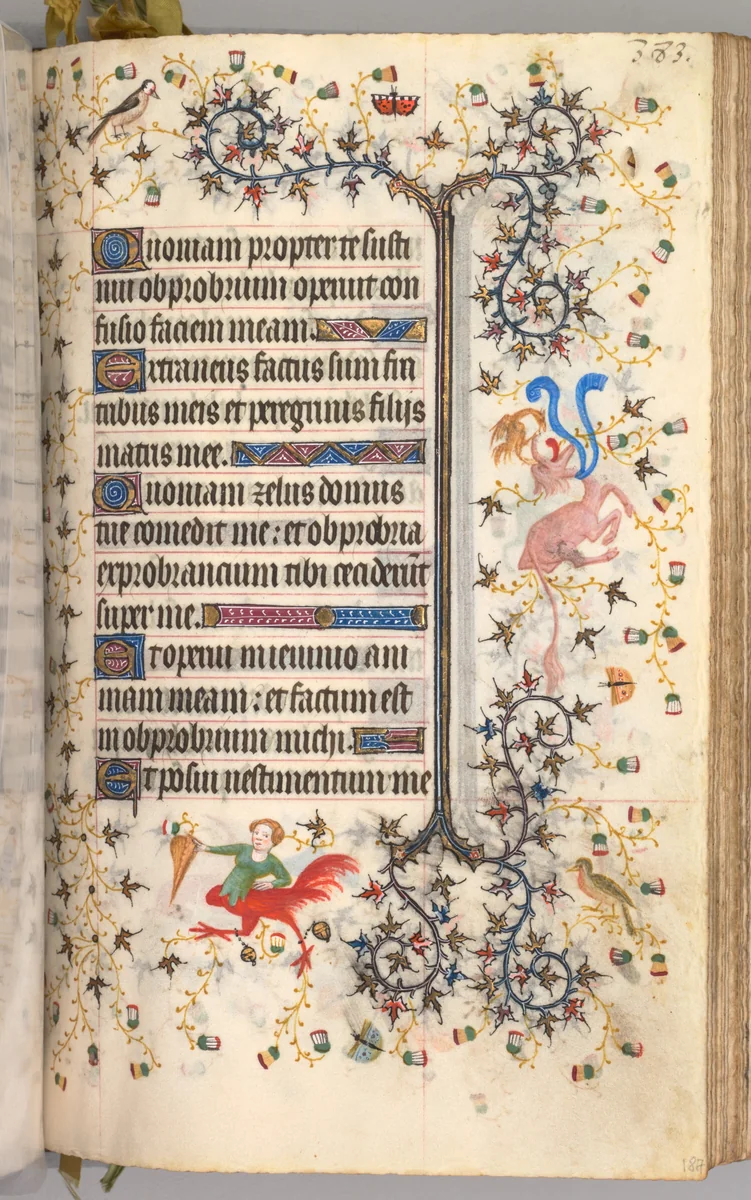 383.
Quoniam propter te susti
nui obprobrium operuit con
fusio faciem meam.
Extraneus factus sum fra
tribus meis et peregrinus filijs
matris mee.
Quoniam zelus domus
tue comedit me : et obprobria
exprobrancium tibi ceciderūt
super me.
Et operui in ieiunio ani
mam meam : et factum est
in obprobrium michi.
Et posui uestimentum me
187